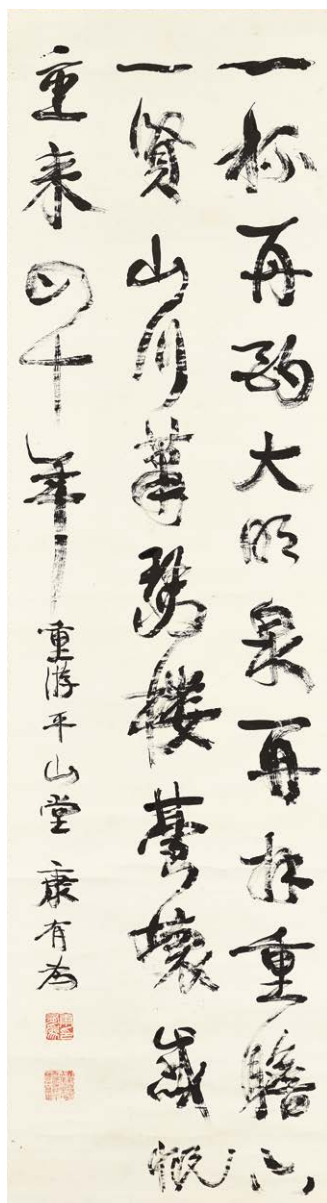 一杯再酌大明泉再拜重瞻六
一賢山川蕭瑟樓臺壞感慨
重來四十年
重游平山堂 康有為